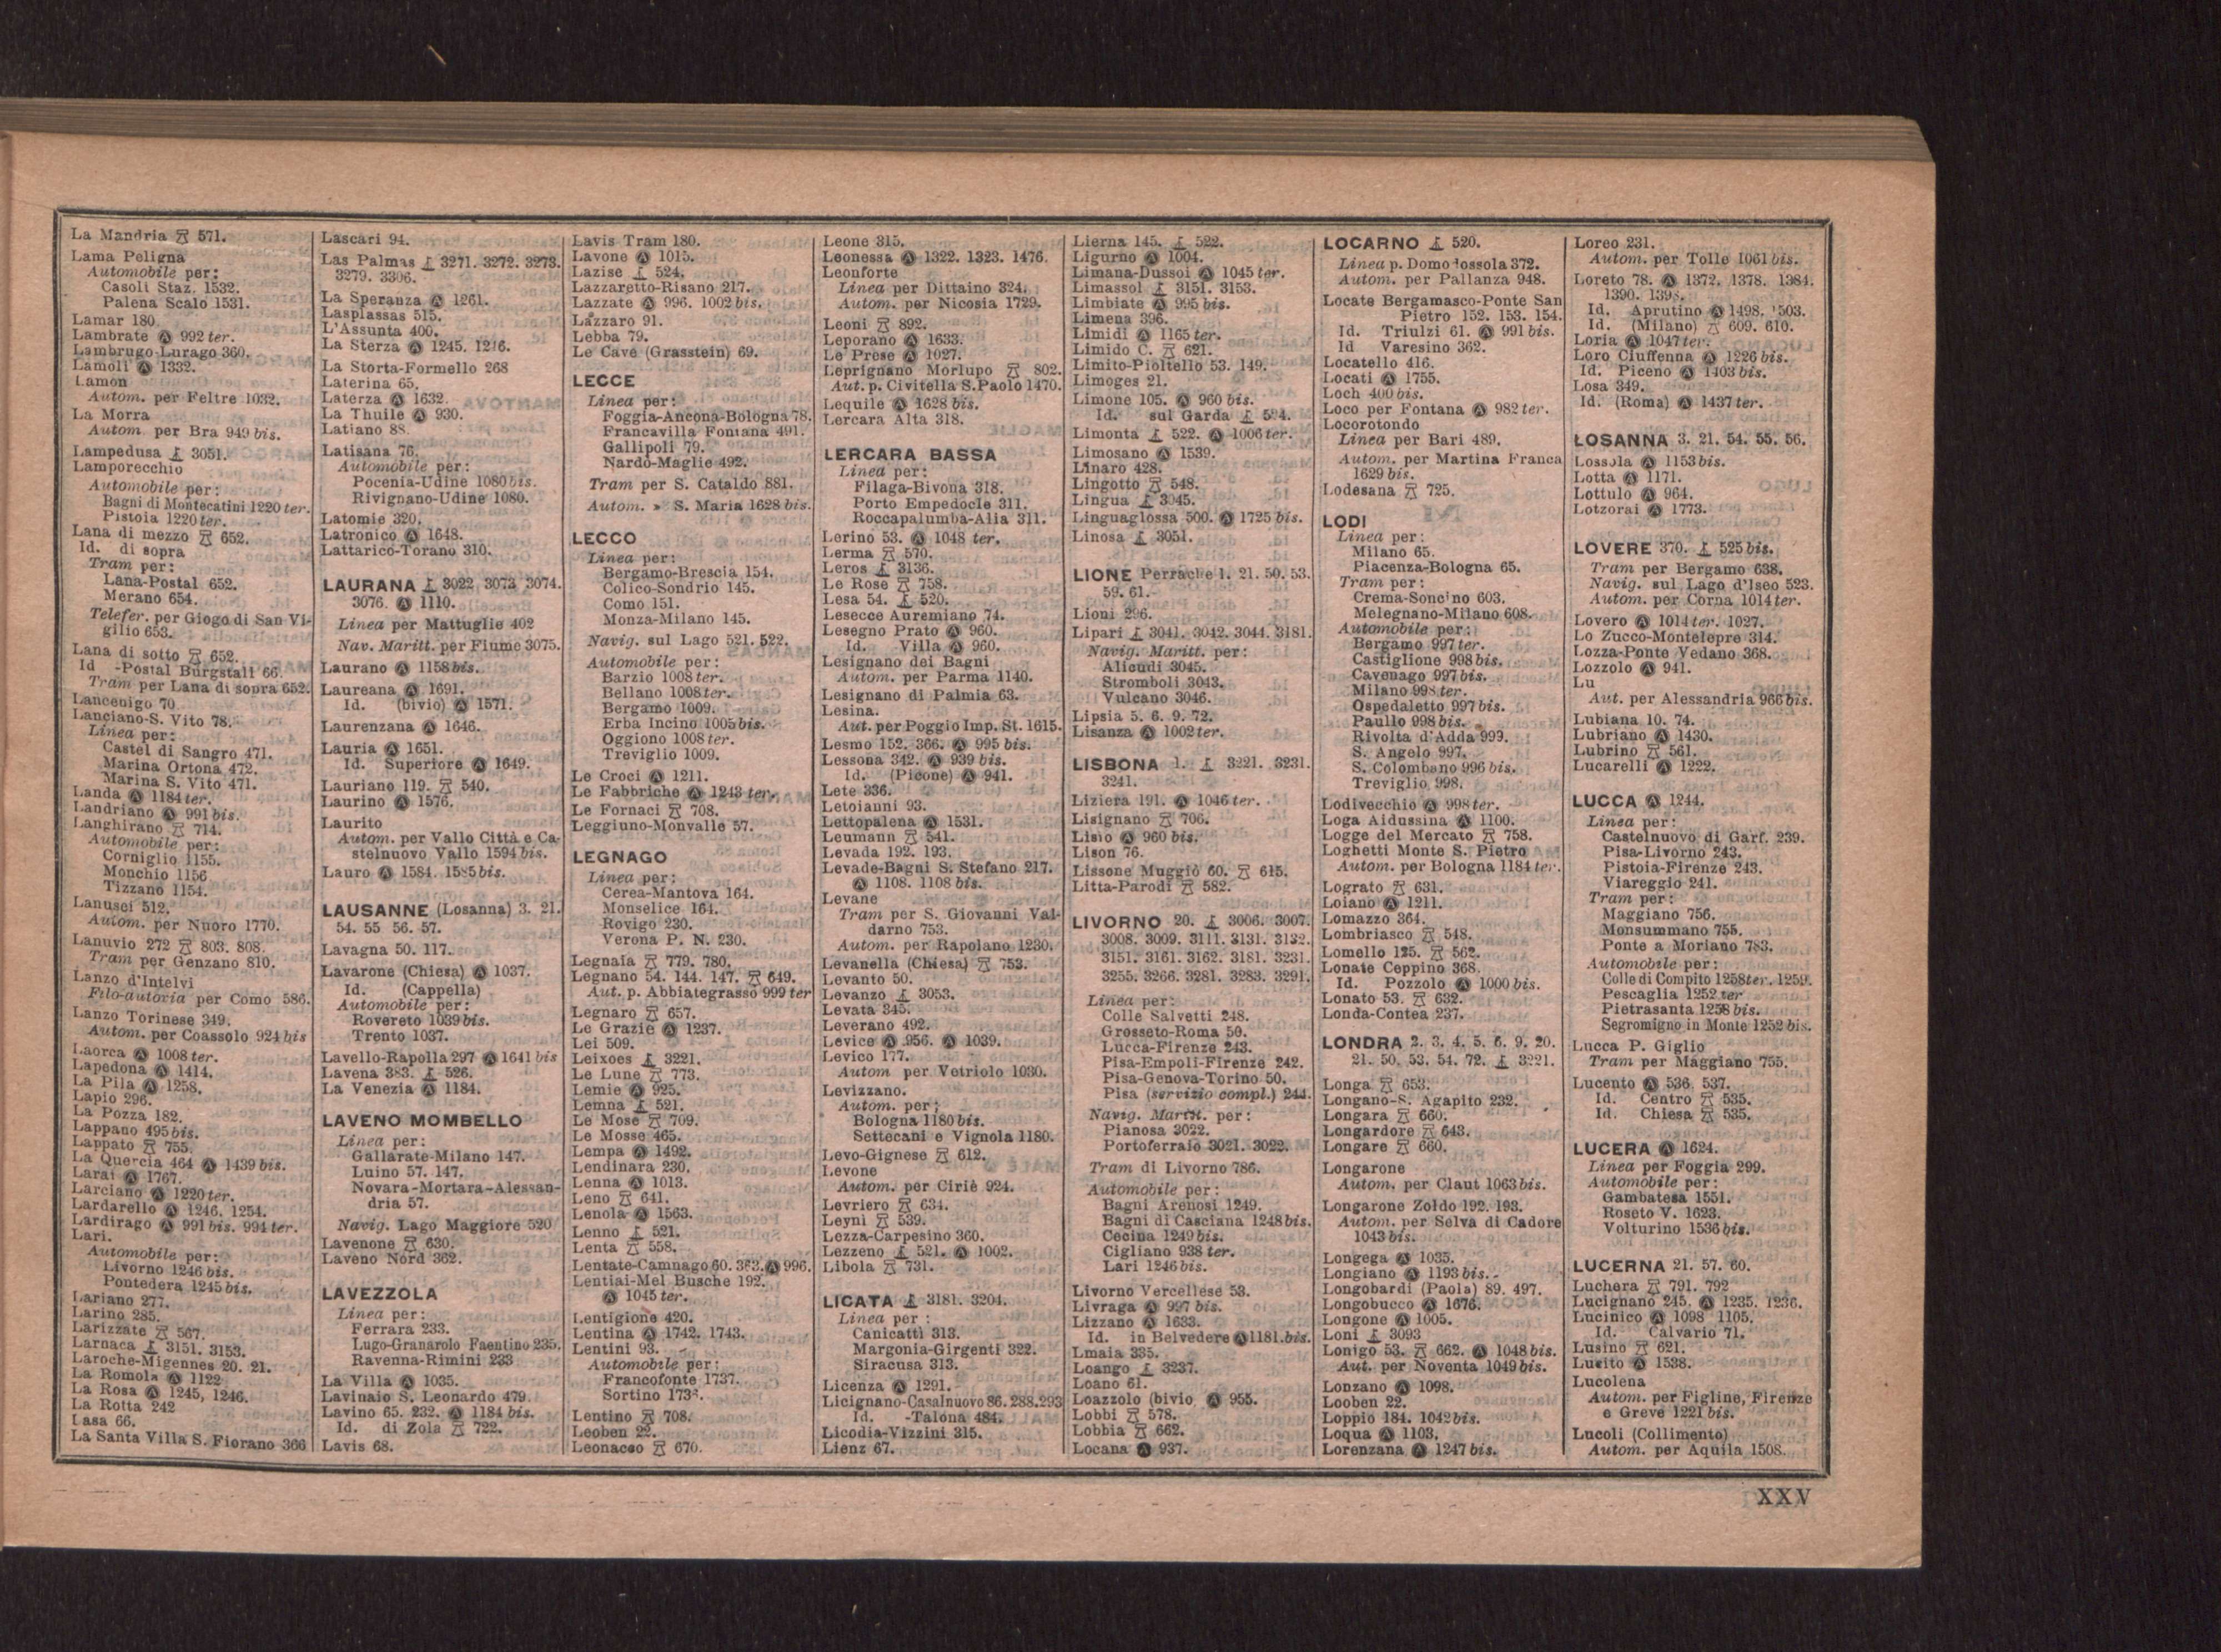 La Mandria 571.
Lama Peligna
Automobile per:
Casoli Staz. 1532.
Palena Scalo 1531.
Lamar 180.
Lambrate Ⓐ 992 ter.
Lambrugo-Lurago 360.
Lamoli Ⓐ 1332.
Lamon
Autom. per Feltre 1032.
La Morra
Autom. per Bra 949 bis.
Lampedusa 3051.
Lamporecchio
Automobile per:
Bagni di Montecatini 1220 ter.
Pistoia 1220 ter.
Lana di mezzo 652.
Id. di sopra
Tram per:
Lana-Postal 652.
Merano 654.
Telefer. per Giogo di San Vi-
gilio 653.
Lana di sotto 652.
Id -Postal Burgstall 66.
Tram per Lana di sopra 652.
Lancenigo 70
Lanciano-S. Vito 78.
Linea per:
Castel di Sangro 471.
Marina Ortona 472.
Marina S. Vito 471.
Landa Ⓐ 1184 ter.
Landriano Ⓐ 991 bis.
Langhirano 714.
Automobile per:
Corniglio 1155.
Monchio 1156
Tizzano 1154.
Lanusei 512.
Autom. per Nuoro 1770.
Lanuvio 272 803. 808.
Tram per Genzano 810.
Lanzo d'Intelvi
Filo-autovia per Como 586.
Lanzo Torinese 349.
Autom. per Coassolo 924 bis
Laorca Ⓐ 1008 ter.
Lapedona Ⓐ 1414.
La Pila Ⓐ 1258.
Lapio 296.
La Pozza 182.
Lappano 495 bis.
Lappato 755.
La Quercia 464 Ⓐ 1439 bis.
Larai Ⓐ 1767.
Larciano Ⓐ 1220 ter.
Lardarello Ⓐ 1246. 1254.
Lardirago Ⓐ 991 bis. 994 ter.
Lari.
Automobile per:
Livorno 1246 bis.
Pontedera 1245 bis.
Lariano 277.
Larino 285.
Larizzate 567.
Larnaca 3151. 3153.
Laroche-Migennes 20. 21.
La Romola Ⓐ 1122
La Rosa Ⓐ 1245, 1246.
La Rotta 242
Lasa 66.
La Santa Villa S. Fiorano 366
Lascari 94.
Las Palmas 3271. 3272. 3273.
3279. 3306.
La Speranza Ⓐ 1261.
Lasplassas 515.
L'Assunta 400.
La Sterza Ⓐ 1245. 1246.
La Storta-Formello 268
Laterina 65.
Laterza Ⓐ 1632.
La Thuile Ⓐ 930.
Latiano 88.
Latisana 76.
Automobile per:
Pocenia-Udine 1080 bis.
Rivignano-Udine 1080.
Latomie 320.
Latronico Ⓐ 1648.
Lattarico-Torano 310.
LAURANA 3022 3073 3074.
3076. Ⓐ 1110.
Linea per Mattuglie 402
Nav. Maritt. per Fiume 3075.
Laurano Ⓐ 1158 bis.
Laureana Ⓐ 1691.
Id. (bivio) Ⓐ 1571.
Laurenzana Ⓐ 1646.
Lauria Ⓐ 1651.
Id. Superiore Ⓐ 1649.
Lauriano 119. 540.
Laurino Ⓐ 1576.
Laurito
Autom. per Vallo Città e Ca-
stelnuovo Vallo 1594 bis.
Lauro Ⓐ 1584. 1585 bis.
LAUSANNE (Losanna) 3. 21.
54. 55 56. 57.
Lavagna 50. 117.
Lavarone (Chiesa) Ⓐ 1037.
Id. (Cappella)
Automobile per:
Rovereto 1039 bis.
Trento 1037.
Lavello-Rapolla 297 Ⓐ 1641 bis
Lavena 383. 526.
La Venezia Ⓐ 1184.
LAVENO MOMBELLO
Linea per:
Gallarate-Milano 147.
Luino 57. 147.
Novara-Mortara-Alessan-
dria 57.
Navig. Lago Maggiore 520
Lavenone 630.
Laveno Nord 362.
LAVEZZOLA
Linea per:
Ferrara 233.
Lugo-Granarolo Faentino 235.
Ravenna-Rimini 233
La Villa Ⓐ 1035.
Lavinaio S. Leonardo 479.
Lavino 65. 232. Ⓐ 1184 bis.
Id. di Zola 722.
Lavis 68.
Lavis Tram 180.
Lavone Ⓐ 1015.
Lazise 524.
Lazzaretto-Risano 217.
Lazzate Ⓐ 996. 1002 bis.
Lazzaro 91.
Lebba 79.
Le Cave (Grasstein) 69.
LECCE
Linea per:
Foggia-Ancona-Bologna 78.
Francavilla Fontana 491.
Gallipoli 79.
Nardò-Maglie 492.
Tram per S. Cataldo 881.
Autom. » S. Maria 1628 bis.
LECCO
Linea per:
Bergamo-Brescia 154.
Colico-Sondrio 145.
Como 151.
Monza-Milano 145.
Navig. sul Lago 521. 522.
Automobile per:
Barzio 1008 ter.
Bellano 1008 ter.
Bergamo 1009.
Erba Incino 1005 bis.
Oggiono 1008 ter.
Treviglio 1009.
Le Croci Ⓐ 1211.
Le Fabbriche Ⓐ 1243 ter.
Le Fornaci 708.
Leggiuno-Monvalle 57.
LEGNAGO
Linea per:
Cerea-Mantova 164.
Monselice 164.
Rovigo 230.
Verona P. N. 230.
Legnaia 779. 780.
Legnano 54. 144. 147. 649.
Aut. p. Abbiategrasso 999 ter
Legnaro 657.
Le Grazie Ⓐ 1237.
Lei 509.
Leixoes 3221.
Le Lune 773.
Lemie Ⓐ 925.
Lemna 521.
Le Mose 709.
Le Mosse 465.
Lempa Ⓐ 1492.
Lendinara 230.
Lenna Ⓐ 1013.
Leno 641.
Lenola Ⓐ 1563.
Lenno 521.
Lenta 558.
Lentate-Camnago 60. 363. Ⓐ 996.
Lentiai-Mel Busche 192.
Ⓐ 1045 ter.
Lentigione 420.
Lentina Ⓐ 1742. 1743.
Lentini 93.
Automobile per:
Francofonte 1737.
Sortino
Lentino 708.
Leoben 22.
Leonacco 670.
Leone 315.
Leonessa Ⓐ 1322. 1323. 1476.
Leonforte
Linea per Dittaino 324.
Autom. per Nicosia 1729.
Leoni 892.
Leporano Ⓐ 1633.
Le Prese Ⓐ 1027.
Leprignano Morlupo 802.
Aut. p. Civitella S.Paolo 1470.
Lequile Ⓐ 1628 bis.
Lercara Alta 318.
LERCARA BASSA
Linea per:
Filaga-Bivona 318.
Porto Empedocle 311.
Roccapalumba-Alia 311.
Lerino 53. Ⓐ 1048 ter.
Lerma 570.
Leros 3136.
Le Rose 758.
Lesa 54. 520.
Lesecce Auremiano 74.
Lesegno Prato Ⓐ 960.
Id. Villa Ⓐ 960.
Lesignano dei Bagni
Autom. per Parma 1140.
Lesignano di Palmia 63.
Lesina.
Aut. per Poggio Imp. St. 1615.
Lesmo 152. 366. Ⓐ 995 bis.
Lessona 342. Ⓐ 939 bis.
Id. (Picone) Ⓐ 941.
Lete 336.
Letoianni 93.
Lettopalena Ⓐ 1531.
Leumann 541.
Levada 192. 193.
Levade-Bagni S. Stefano 217.
Ⓐ 1108. 1108 bis.
Levane
Tram per S. Giovanni Val-
darno 753.
Autom. per Rapolano 1230.
Levanella (Chiesa) 753.
Levanto 50.
Levanzo 3053.
Levata 345.
Leverano 492.
Levice Ⓐ 956. Ⓐ 1039.
Levico 177.
Autom per Vetriolo 1030.
Levizzano.
Autom. per:
Bologna 1180 bis.
Settecani e Vignola 1180.
Levo-Gignese 612.
Levone
Autom. per Ciriè 924.
Levriero 634.
Leyni 539.
Lezza-Carpesino 360.
Lezzeno 521. Ⓐ 1002.
Libola 731.
LICATA 3181. 3204.
Linea per:
Canicattì 313.
Margonia-Girgenti 322.
Siracusa 313.
Licenza Ⓐ 1291.
Licignano-Casalnuovo 86. 288. 293
Id. -Talona 484.
Licodia-Vizzini 315.
Lienz 67.
Lierna 145. 522.
Ligurno Ⓐ 1004.
Limana-Dussoi Ⓐ 1045 ter.
Limassol 3151. 3153.
Limbiate Ⓐ 995 bis.
Limena 396.
Limidi Ⓐ 1165 ter.
Limido C. 621.
Limito-Pioltello 53. 149.
Limoges 21.
Limone 105. Ⓐ 960 bis.
Id. sul Garda 524.
Limonta 522. Ⓐ 1006 ter.
Limosano Ⓐ 1539.
Linaro 428.
Lingotto 548.
Lingua 3045.
Linguaglossa 500. Ⓐ 1725 bis.
Linosa 3051.
LIONE Perrache 1. 21. 50. 53.
59. 61.
Lioni 296.
Lipari 3041. 3042. 3044. 3181.
Navig. Maritt. per:
Alicudi 3045.
Stromboli 3043.
Vulcano 3046.
Lipsia 5. 6. 9. 72.
Lisanza Ⓐ 1002 ter.
LISBONA 1. 3221. 3231.
3241.
Liziera 191. Ⓐ 1046 ter.
Lisignano 706.
Lisio Ⓐ 960 bis.
Lison 76.
Lissone Muggiò 60. 615.
Litta-Parodi 582.
LIVORNO 20. 3006. 3007.
3008. 3009. 3111. 3131. 3132.
3151. 3161. 3162. 3181. 3231.
3255. 3266. 3281. 3283. 3291.
Linea per:
Colle Salvetti 248.
Grosseto-Roma 50.
Lucca-Firenze 243.
Pisa-Empoli-Firenze 242.
Pisa-Genova-Torino 50.
Pisa (servizio compl.) 244.
Navig. Maritt. per:
Pianosa 3022.
Portoferraio 3021. 3022.
Tram di Livorno 786.
Automobile per:
Bagni Arenosi 1249.
Bagni di Casciana 1248 bis.
Cecina 1249 bis.
Cigliano 938 ter.
Lari 1246 bis.
Livorno Vercellese 53.
Livraga Ⓐ 997 bis.
Lizzano Ⓐ 1633.
Id. in Belvedere Ⓐ 1181 bis.
Lmaia 335.
Loango 3237.
Loano 61.
Loazzolo (bivio Ⓐ 955.
Lobbi 578.
Lobbia 662.
Locana Ⓐ 937.
LOCARNO 520.
Linea p. Domodossola 372.
Autom. per Pallanza 948.
Locate Bergamasco-Ponte San
Pietro 152. 153. 154.
Id. Triulzi 61. Ⓐ 991 bis.
Id Varesino 362.
Locatello 416.
Locati Ⓐ 1755.
Loch 400 bis.
Loco per Fontana Ⓐ 982 ter.
Locorotondo
Linea per Bari 489.
Autom. per Martina Franca
1629 bis.
Lodesana 725.
LODI
Linea per:
Milano 65.
Piacenza-Bologna 65.
Tram per:
Crema-Soncino 603.
Melegnano-Milano 608.
Automobile per:
Bergamo 997 ter.
Castiglione 998 bis.
Cavenago 997 bis.
Milano 998 ter.
Ospedaletto 997 bis.
Paullo 998 bis.
Rivolta d'Adda 999.
S. Angelo 997.
S. Colombano 996 bis.
Treviglio 998.
Lodivecchio Ⓐ 998 ter.
Loga Aidussina Ⓐ 1100.
Logge del Mercato 758.
Loghetti Monte S. Pietro
Autom. per Bologna 1184 ter.
Lograto 631.
Loiano Ⓐ 1211.
Lomazzo 364.
Lombriasco 548.
Lomello 125. 562.
Lonate Ceppino 368.
Id. Pozzolo Ⓐ 1000 bis.
Lonato 53. 632.
Londa-Contea 237.
LONDRA 2. 3. 4. 5. 6. 9. 20.
21. 50. 53. 54. 72. 3221.
Longa 653.
Longano-S. Agapito 232.
Longara 660.
Longardore 643.
Longare 660.
Longarone
Autom. per Claut 1063 bis.
Longarone Zoldo 192. 193.
Autom. per Selva di Cadore
1043 bis.
Longega Ⓐ 1035.
Longiano Ⓐ 1193 bis.
Longobardi (Paola) 89. 497.
Longobucco Ⓐ 1676.
Longone Ⓐ 1005.
Loni 3093
Lonigo 53. 662. Ⓐ 1048 bis.
Aut. per Noventa 1049 bis.
Lonzano Ⓐ 1098.
Looben 22.
Loppio 184. 1042 bis.
Loqua Ⓐ 1103.
Lorenzana Ⓐ 1247 bis.
Loreo 231.
Autom. per Tolle 1061 bis.
Loreto 78. Ⓐ 1372. 1378. 1384.
1390. 1398.
Id. Aprutino Ⓐ 1498. 1503.
Id. (Milano) 609. 610.
Loria Ⓐ 1047 ter.
Loro Ciuffenna Ⓐ 1226 bis.
Id. Piceno Ⓐ 1403 bis.
Losa 349.
Id. (Roma) Ⓐ 1437 ter.
LOSANNA 3. 21. 54. 55. 56.
Lossola Ⓐ 1153 bis.
Lotta Ⓐ 1171.
Lottulo Ⓐ 964.
Lotzorai Ⓐ 1773.
LOVERE 370. 525 bis.
Tram per Bergamo 638.
Navig. sul Lago d'Iseo 523.
Autom. per Corna 1014 ter.
Lovero Ⓐ 1014 ter. 1027.
Lo Zucco-Montelepre 314.
Lozza-Ponte Vedano 368.
Lozzolo Ⓐ 941.
Lu
Aut. per Alessandria 966 bis.
Lubiana 10. 74.
Lubriano Ⓐ 1430.
Lubrino 561.
Lucarelli Ⓐ 1222.
LUCCA Ⓐ 1244.
Linea per:
Castelnuovo di Garf. 239.
Pisa-Livorno 243.
Pistoia-Firenze 243.
Viareggio 241.
Tram per:
Maggiano 756.
Monsummano 755.
Ponte a Moriano 783.
Automobile per:
Colle di Compito 1258 ter. 1259.
Pescaglia 1252 ter
Pietrasanta 1258 bis.
Segromigno in Monte 1252 bis.
Lucca P. Giglio
Tram per Maggiano 755.
Lucento Ⓐ 536. 537.
Id. Centro 535.
Id. Chiesa 535.
LUCERA Ⓐ 1624.
Linea per Foggia 299.
Automobile per:
Gambatesa 1551.
Roseto V. 1623.
Volturino 1536 bis.
LUCERNA 21. 57. 60.
Luchera 791. 792
Lucignano 245. Ⓐ 1235. 1236.
Lucinico Ⓐ 1098 1105.
Id. Calvario 71.
Lusino 621.
Lucito Ⓐ 1538.
Lucolena
Autom. per Figline, Firenze
e Greve 1221 bis.
Lucoli (Collimento)
Autom. per Aquila 1508.
XXV